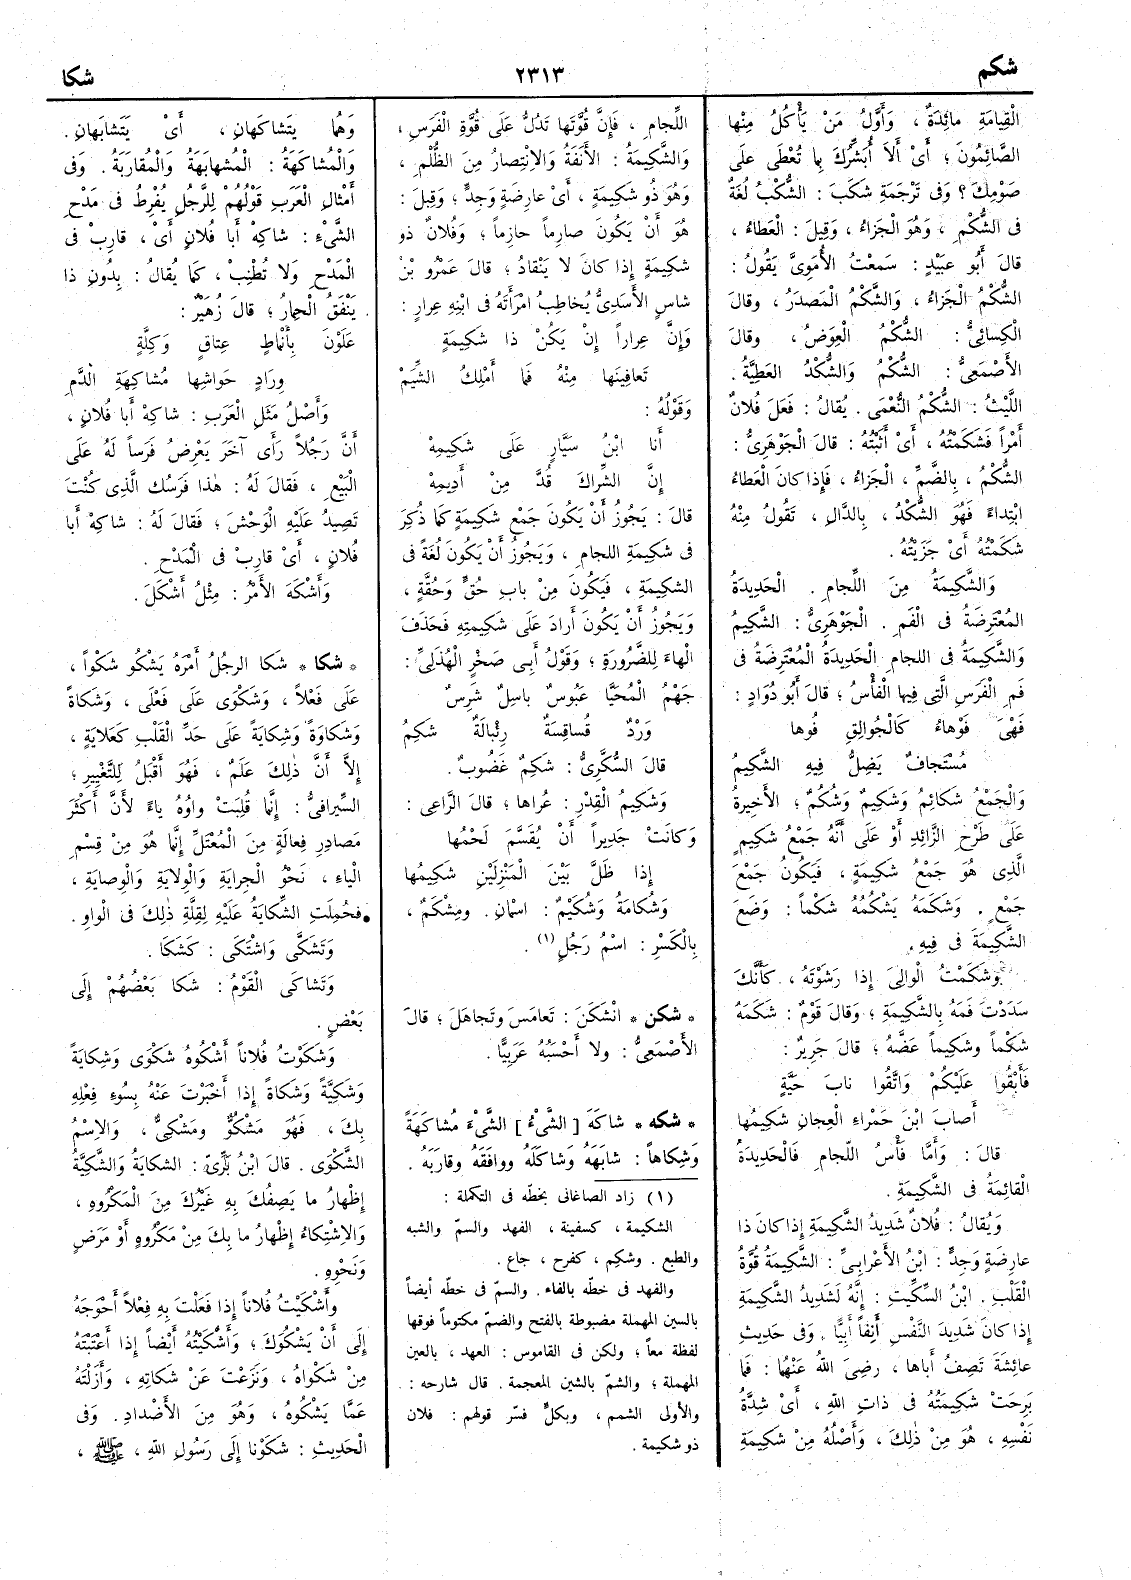 شكم
٢٣١٣
شكا
الْقِيامَةِ مائِدَةٌ ، وَأَوَّلُ مَنْ يَأْكُلُ مِنْها
الصَّائِمُونَ ؛ أَىْ أَلاَ أُبَشِّرُكَ بِما تُعْطَى عَلَى
صَوْمِكَ ؟ وَفى تَرْجَمَةِ شَكَبَ : الشُّكْبُ لُغَةٌ
فى الشُّكْمِ ، وَهُوَ الْجَزاءُ ، وَقِيلَ : الْعَطاءُ ،
قالَ أَبُو عَبَيْدٍ : سَمِعْتُ الأُمَوِىَّ يَقُولُ :
الشُّكْمُ الْجَزاءُ ، وَالشَّكْمُ الْمَصْدَرُ ، وَقالَ
الْكِسائِىُّ : الشُّكْمُ الْعِوَضُ ، وَقالَ
الأَصْمَعِىُّ : الشُّكْمُ وَالشُّكْدُ الْعَطِيَّةُ .
اللَّيْثُ : الشُّكْمُ النُّعْمَى . يُقالُ : فَعَلَ فُلانٌ
أَمْراً فَشَكَمْتُهُ ، أَىْ أَثَبْتُهُ : قالَ الْجَوْهَرِىُّ :
الشُّكْمُ ، بِالضَّمِّ ، الْجَزاءُ ، فَإِذا كانَ الْعَطاءُ
ابْتِداءً فَهُوَ الشُّكْدُ ، بِالدَّالِ ، تَقُولُ مِنْهُ
شَكَمْتُهُ أَىْ جَزَيْتُهُ .
وَالشَّكِيمَةُ مِنَ اللِّجامِ . الْحَدِيدَةُ
الْمُعْتَرِضَةُ فى الْفَمِ . الْجَوْهَرِىُّ : الشَّكِيمُ
وَالشَّكِيمَةُ فى اللجامِ الْحَدِيدَةُ الْمُعْتَرِضَةُ فى
فَمِ الْفَرَسِ الَّتِى فِيها الْفَأْسُ ؛ قالَ أَبُو دُوَادٍ :
فَهْىَ فَوْهاءُ كَالْجُوالِقِ فُوها
مُسْتَجافٌ يَضِلُّ فِيهِ الشَّكِيمُ
وَالْجَمْعُ شَكائِمُ وَشَكِيمٌ وَشُكُمٌ ؛ الأَخِيرَةُ
عَلَى طَرْحِ الزَّائِدِ أَوْ عَلَى أَنَّهُ جَمْعُ شَكِيمٍ
الَّذِى هُوَ جَمْعُ شَكِيمَةٍ ، فَيَكُونُ جَمْعَ
جَمْعٍ . وَشَكَمَهُ يَشْكُمُهُ شَكْماً : وَضَعَ
الشَّكِيمَةَ فى فِيهِ .
وَشَكَمْتُ الْوالِىَ إِذا رَشَوْتَهُ ، كَأَنَّكَ
سَدَدْتَ فَمَهُ بِالشَّكِيمَةِ ؛ وَقالَ قَوْمٌ : شَكَمَهُ
شَكْماً وشَكِيماً عَضَّهُ ؛ قالَ جَرِيرٌ :
فَأَبْقُوا عَلَيْكُمْ وَاتَّقُوا نابَ حَيَّةٍ
أَصابَ ابْنَ حَمْراءِ الْعِجانِ شَكِيمُها
قالَ : وَأَمَّا فَأْسُ اللِّجامِ فَالْحَدِيدَةُ
الْقائِمَةُ فى الشَّكِيمَةِ .
وَيُقالُ : فُلانٌ شَدِيدُ الشَّكِيمَةِ إِذا كانَ ذا
عارِضَةٍ وَجِدٍّ : ابْنُ الأَعْرابِىِّ : الشَّكِيمَةُ قُوَّةُ
الْقَلْبِ . ابْنُ السِّكِّيتِ : إِنَّهُ لَشَدِيدُ الشَّكِيمَةِ
إِذا كانَ شَدِيدَ النَّفْسِ أَنِفاً أَبِيًّا . وَفى حَدِيثِ
عائِشَةَ تَصِفُ أَباها ، رَضِىَ اللهُ عَنْهُا : فَما
بَرِحَتْ شَكِيمَتُهُ فى ذاتِ اللهِ ، أَىْ شِدَّةُ
نَفْسِهِ ، هُوَ مِنْ ذٰلِكَ ، وَأَصْلُهُ مِنْ شَكِيمَةِ
اللِّجامِ ، فَإِنَّ قُوَّتَها تَدُلُّ عَلَى قُوَّةِ الْفَرَسِ ،
وَالشَّكِيمَةُ : الأَنَفَةُ وَالِانْتِصارُ مِنَ الظُّلْمِ ،
وَهُوَ ذُو شَكِيمَةٍ ، أَىْ عارِضَةٍ وَجِدٍّ ؛ وَقِيلَ :
هُوَ أَنْ يَكُونَ صارِماً حازِماً ؛ وَفُلانٌ ذو
شَكِيمَةٍ إِذا كانَ لا يَنْقادُ ؛ قالَ عَمْرُو بْنُ
شاسٍ الأَسَدِىُّ يُخاطِبُ امْرَأَتَهُ فى ابْنِهِ عِرارٍ :
وَإِنَّ عِراراً إِنْ يَكُنْ ذا شَكِيمَةٍ
تَعافِينَها مِنْهُ فَما أَمْلِكُ الشِّيَمْ
وَقَوْلُهُ :
أَنا ابْنُ سَيَّارٍ عَلَى شَكِيمِهْ
إِنَّ الشِّراكَ قُدَّ مِنْ أَدِيمِهْ
قالَ : يَجُوزُ أَنْ يَكُونَ جَمْعَ شَكِيمَةٍ كَما ذُكِرَ
فى شَكِيمَةِ اللجامِ ، وَيَجُوزُ أَنْ يَكُونَ لُغَةً فى
الشكِيمَةِ ، فَيَكُونَ مِنْ بابِ حُقٍّ وَحُقَّةٍ ،
وَيَجُوزُ أَنْ يَكُونَ أَرادَ عَلَى شَكِيمَتِهِ فَحَذَفَ
الْهاءَ لِلضَّرُورَةِ ؛ وَقَوْلُ أَبِى صَخْرٍ الْهُذَلِىِّ :
جَهْمُ الْمُحَيَّا عَبُوسٌ باسِلٌ شَرِسٌ
وَرْدٌ قُساقِسَةٌ رِئْبالَةٌ شَكِمُ
قالَ السُّكَّرِىُّ : شَكِمٌ غَضُوبٌ .
وَشَكِيمُ الْقِدْرِ : عُراها ؛ قالَ الرَّاعِى :
وَكانَتْ جَدِيراً أَنْ يُقَسَّمَ لَحْمُها
إِذا ظَلَّ بَيْنَ الْمَنْزِلَيْنِ شَكِيمُها
وَشُكامَةُ وَشُكَيْمٌ : اسْمانِ . ومِشْكَمٌ ،
بِالْكَسْرِ : اسْمُ رَجُلٍ (١) .
* شكن * انْشَكَنَ : تَعامَسَ وَتَجاهَلَ ؛ قالَ
الأَصْمَعِىُّ : ولا أَحْسَبُهُ عَرَبِيًّا .
* شكه * شاكَهَ [ الشَّىْءُ ] الشَّىْءَ مُشاكَهَةً
وَشِكاهاً : شابَهَهُ وَشاكَلَهُ وَوافَقَهُ وَقارَبَهُ .
(١) زاد الصاغانى بخطّه فى التكملة :
الشكيمة ، كسفينة ، الفهد والسمّ والشبه
والطبع . وشكِم ، كفرح ، جاع .
والفهد فى خطّه بالفاء . والسمّ فى خطّه أيضاً
بالسين المهملة مضبوطة بالفتح والضمّ مكتوماً فوقها
لفظة معاً ؛ ولكن فى القاموس : العهد ، بالعين
المهملة ؛ والشمّ بالشين المعجمة . قال شارحه :
والأولى الشمم ، وبكلٍّ فسّر قولهم : فلان
ذو شكيمة .
وَهُما يَتَشاكَهانِ ، أَىْ يَتَشابَهانِ .
وَالْمُشاكَهَةُ : الْمُشابَهَةُ وَالْمُقارَبَةُ . وَفى
أَمْثالِ الْعَرَبِ قَوْلُهُمْ لِلرَّجُلِ يُفْرِطُ فى مَدْحِ
الشَّىْءِ : شاكِهْ أَبا فُلانٍ أَىْ ، قارِبْ فى
الْمَدْحِ وَلا تُطْنِبْ ، كَما يُقالُ : بِدُونِ ذا
يَنْفُقُ الْحِمارُ ؛ قالَ زُهَيْرٌ :
عَلَوْنَ بِأَنْماطٍ عِتاقٍ وَكِلَّةٍ
وِرادٍ حَواشِيها مُشاكِهَةِ الدَّمِ
وَأَصْلُ مَثَلِ الْعَرَبِ : شاكِهْ أَبا فُلانٍ ،
أَنَّ رَجُلاً رَأَى آخَرَ يَعْرِضُ فَرَساً لَهُ عَلَى
الْبَيْعِ ، فَقالَ لَهُ : هٰذا فَرَسُكَ الَّذِى كُنْتَ
تَصِيدُ عَلَيْهِ الْوَحْشَ ؛ فَقالَ لَهُ : شاكِهْ أَبا
فُلانٍ ، أَىْ قارِبْ فى الْمَدْحِ .
وَأَشْكَهَ الأَمْرُ : مِثْلُ أَشْكَلَ .
* شكا * شكا الرجُلُ أَمْرَهُ يَشْكُو شَكْواً ،
عَلَى فَعْلاً ، وَشَكْوَى عَلَى فَعْلَى ، وَشَكاةً
وَشَكاوَةً وَشِكايَةً عَلَى حَدِّ الْقَلْبِ كَعَلايَةٍ ،
إِلاَّ أَنَّ ذٰلِكَ عَلَمٌ ، فَهُوَ أَقْبَلُ لِلتَّغْيِيرِ ؛
السِّيرافِىُّ : إِنَّما قُلِبَتْ واوُهُ ياءً لأَنَّ أَكْثَرَ
مَصادِرِ فِعالَةٍ مِنَ الْمُعْتَلِّ إِنَّما هُوَ مِنْ قِسْمِ
الْياءِ ، نَحْوُ الْجِرايَةِ وَالْوِلايَةِ وَالْوِصايَةِ ،
فَحُمِلَتِ الشِّكايَةُ عَلَيْهِ لِقِلَّةِ ذٰلِكَ فى الْواوِ .
وَتَشَكَّى وَاشْتَكَى : كَشَكَا .
وَتَشاكَى الْقَوْمُ : شَكا بَعْضُهُمْ إِلَى
بَعْضٍ .
وَشَكَوْتُ فُلاناً أَشْكُوهُ شَكْوَى وَشِكايَةً
وَشَكِيَّةً وَشَكاةً إِذا أَخْبَرْتَ عَنْهُ بِسُوءِ فِعْلِهِ
بِكَ ، فَهُوَ مَشْكُوٌّ ومَشْكِىٌّ ، وَالِاسْمُ
الشَّكْوَى . قالَ ابْنُ بَرِّىّ : الشكايَةُ وَالشَّكِيَّةُ
إِظْهارُ ما يَصِفُكَ بِهِ غَيْرُكَ مِنَ الْمَكْرُوهِ ،
وَالِاشْتِكاءُ إِظْهارُ ما بِكَ مِنْ مَكْرُوهٍ أَوْ مَرَضٍ
وَنَحْوِهِ .
وأَشْكَيْتُ فُلاناً إِذا فَعَلْتَ بِهِ فِعْلاً أَحْوَجَهُ
إِلَى أَنْ يَشْكُوَكَ ؛ وَأَشْكَيْتُهُ أَيْضاً إِذا أَعْتَبْتَهُ
مِنْ شَكْواهُ ، وَنَزَعْتَ عَنْ شَكاتِهِ ، وَأَزَلْتَهُ
عَمَّا يَشْكُوهُ ، وَهُوَ مِنَ الأَضْدادِ . وَفى
الْحَدِيثِ : شَكَوْنا إِلَى رَسُولِ اللهِ ، ﷺ ،